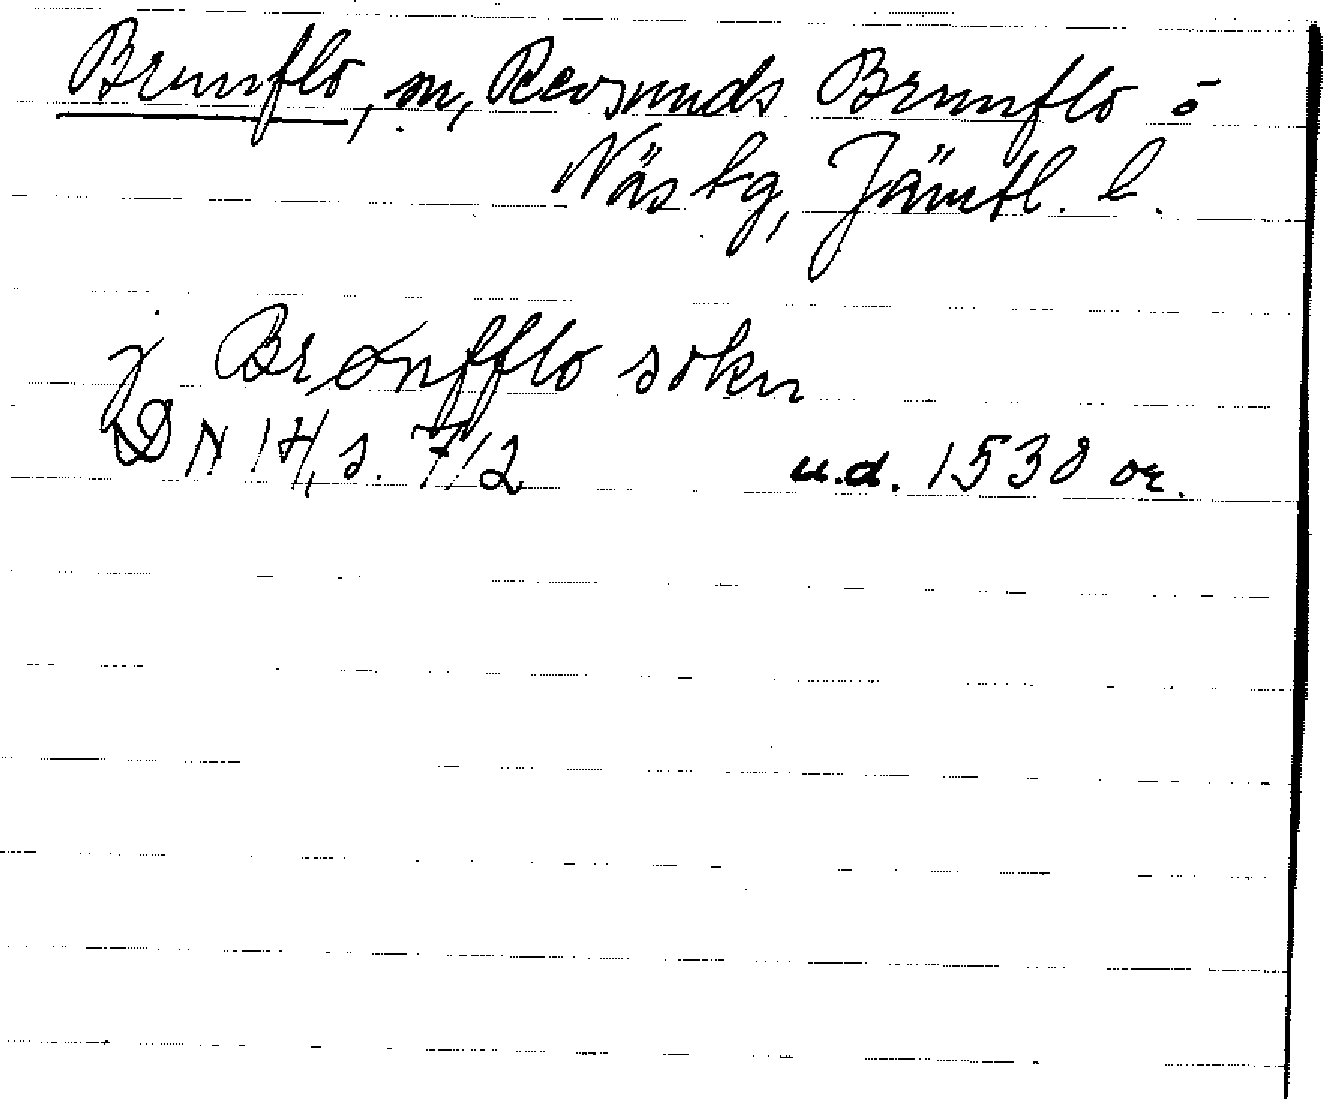 Brunflo, sn, Revsunds Brunflo o
Näs tg, Jämtl. l.
j Brønfflo sokn
DN 14, s. 712 u.d. 1538 or.